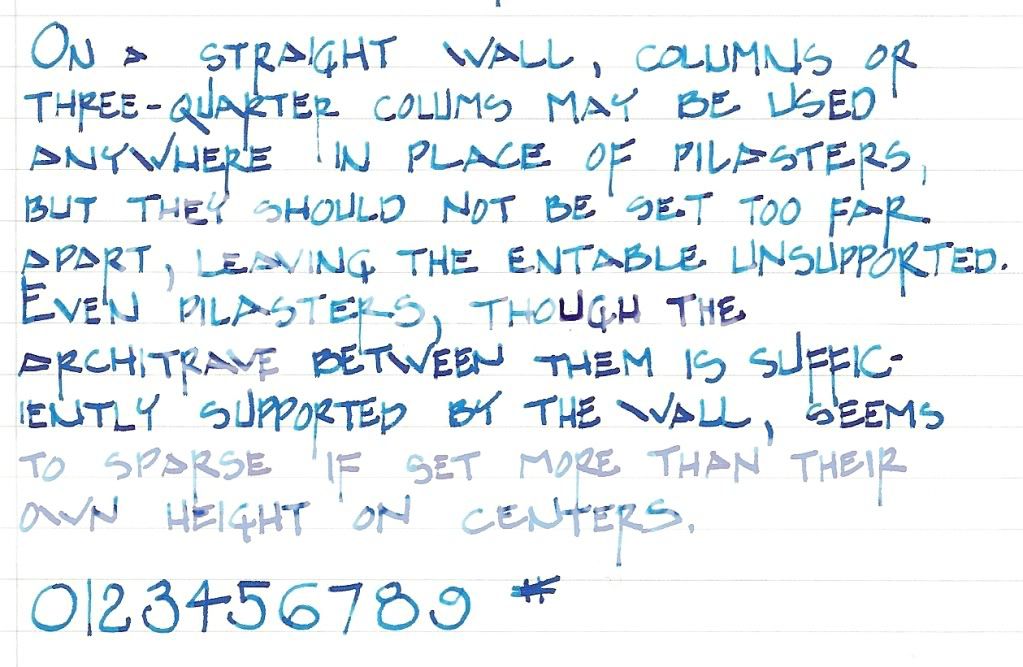 ON A STRAIGHT WALL, COLUMNS OR
THREE-QUARTER COLUMS MAY BE USED
ANYWHERE IN PLACE OF PILASTERS,
BUT THEY SHOULD NOT BE SET TOO FAR
APART, LEAVING THE ENTABLE UNSUPPORTED.
EVEN PILASTERS, THOUGH THE
ARCHITRAVE BETWEEN THEM IS SUFFIC-
IENTLY SUPPORTED BY THE WALL, SEEMS
TO SPARSE IF SET MORE THAN THEIR
OWN HEIGHT ON CENTERS.
0123456789 #